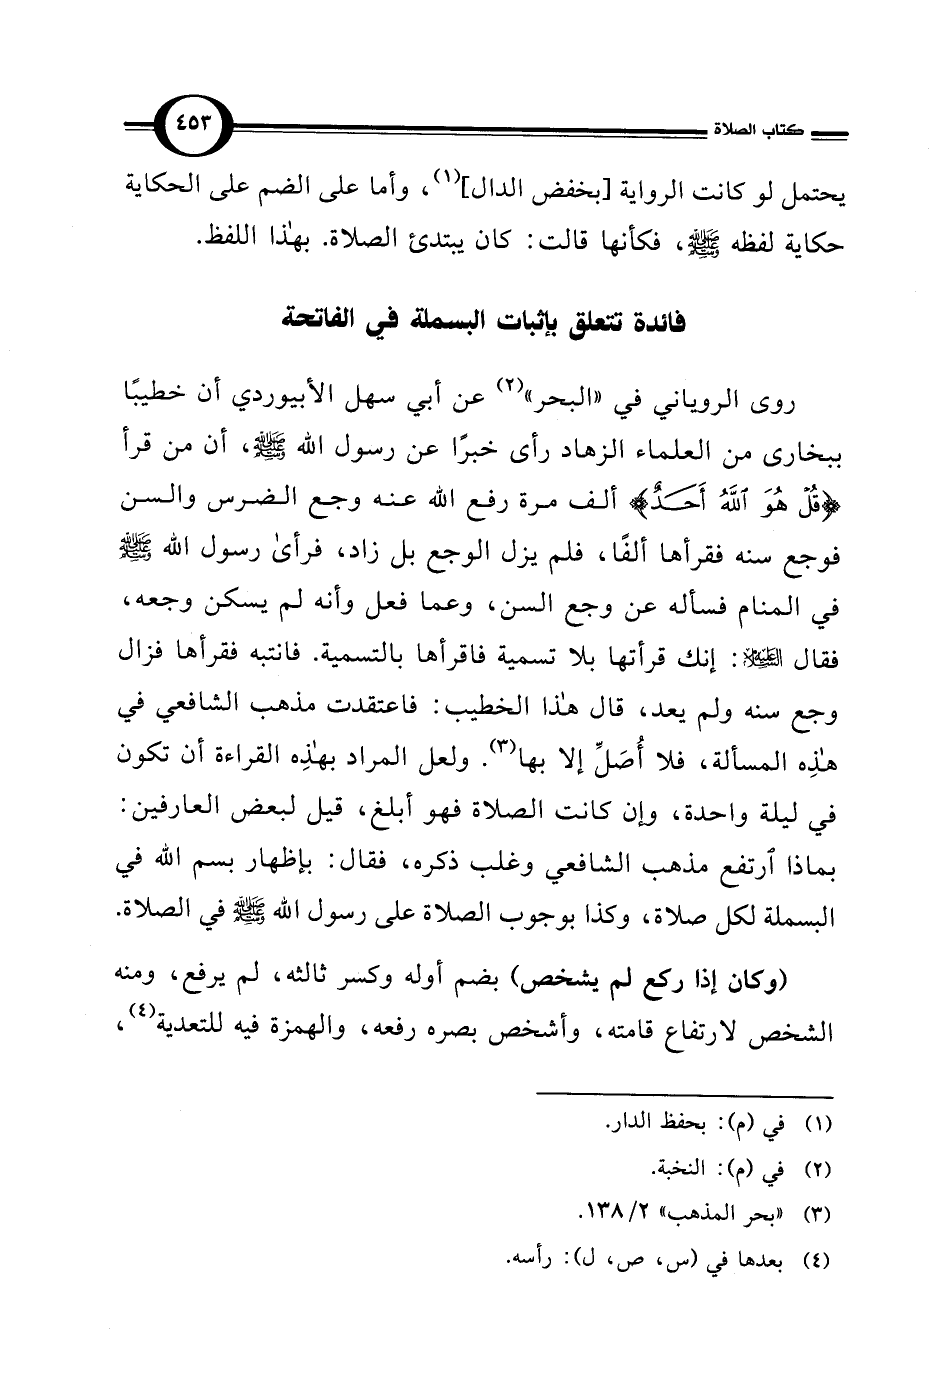 كتاب الصلاة ٤٥٣
يحتمل لو كانت الرواية [بخفض الدال](١)، وأما على الضم على الحكاية
حكاية لفظه ﷺ، فكأنها قالت: كان يبتدئ الصلاة. بهٰذا اللفظ.
فائدة تتعلق بإثبات البسملة في الفاتحة
روى الروياني في «البحر»(٢) عن أبي سهل الأبيوردي أن خطيبًا
ببخارى من العلماء الزهاد رأى خبرًا عن رسول الله ﷺ، أن من قرأ
﴿قُلْ هُوَ ٱللَّهُ أَحَدٌ﴾ ألف مرة رفع الله عنه وجع الضرس والسن
فوجع سنه فقرأها ألفًا، فلم يزل الوجع بل زاد، فرأىٰ رسول الله ﷺ
في المنام فسأله عن وجع السن، وعما فعل وأنه لم يسكن وجعه،
فقال العَلِيْه: إنك قرأتها بلا تسمية فاقرأها بالتسمية. فانتبه فقرأها فزال
وجع سنه ولم يعد، قال هٰذا الخطيب: فاعتقدت مذهب الشافعي في
هٰذِه المسألة، فلا أُصَلِّ إلا بها(٣). ولعل المراد بهٰذِه القراءة أن تكون
في ليلة واحدة، وإن كانت الصلاة فهو أبلغ، قيل لبعض العارفين:
بماذا ٱرتفع مذهب الشافعي وغلب ذكره، فقال: بإظهار بسم الله في
البسملة لكل صلاة، وكذا بوجوب الصلاة على رسول الله ﷺ في الصلاة.
(وكان إذا ركع لم يشخص) بضم أوله وكسر ثالثه، لم يرفع، ومنه
الشخص لارتفاع قامته، وأشخص بصره رفعه، والهمزة فيه للتعدية(٤)،
(١) في (م): بحفظ الدار.
(٢) في (م): النخبة.
(٣) «بحر المذهب» ٢/ ١٣٨.
(٤) بعدها في (س، ص، ل): رأسه.